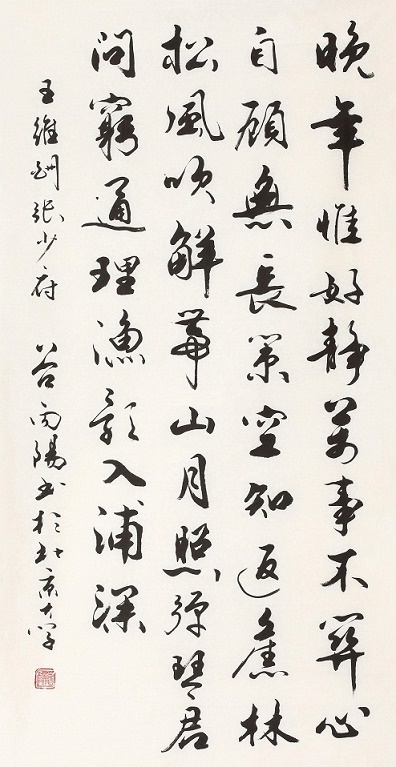 晚年惟好靜萬事不關心
自顧無長策空知返舊林
松風吹解帶山月照彈琴君
問窮通理漁歌入浦深
王維酬張少府 谷向陽書於北京大學